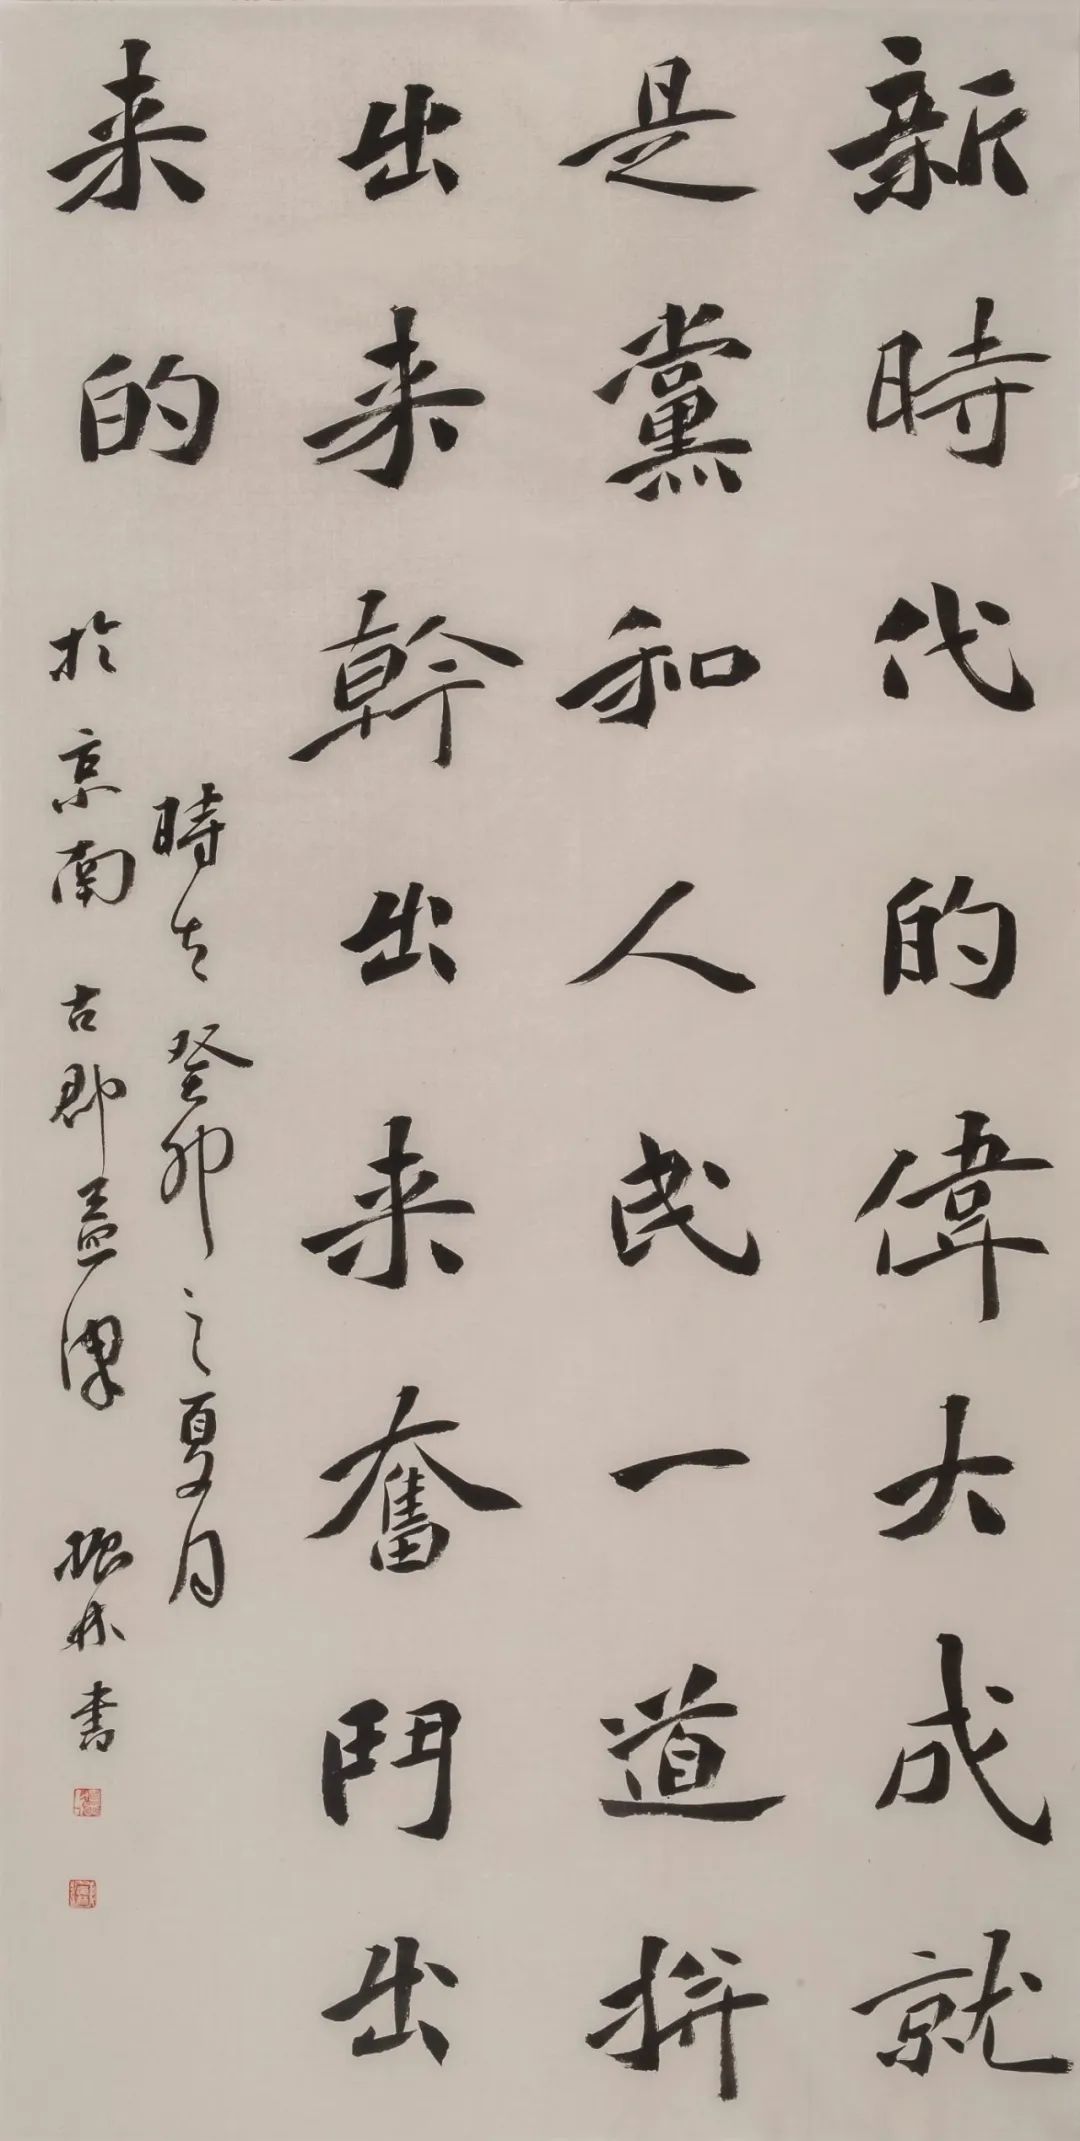 新時代的偉大成就
是黨和人民一道拼
出来幹出来奮鬥出
来的
時在癸卯之夏月
於京南古郡益津振林書